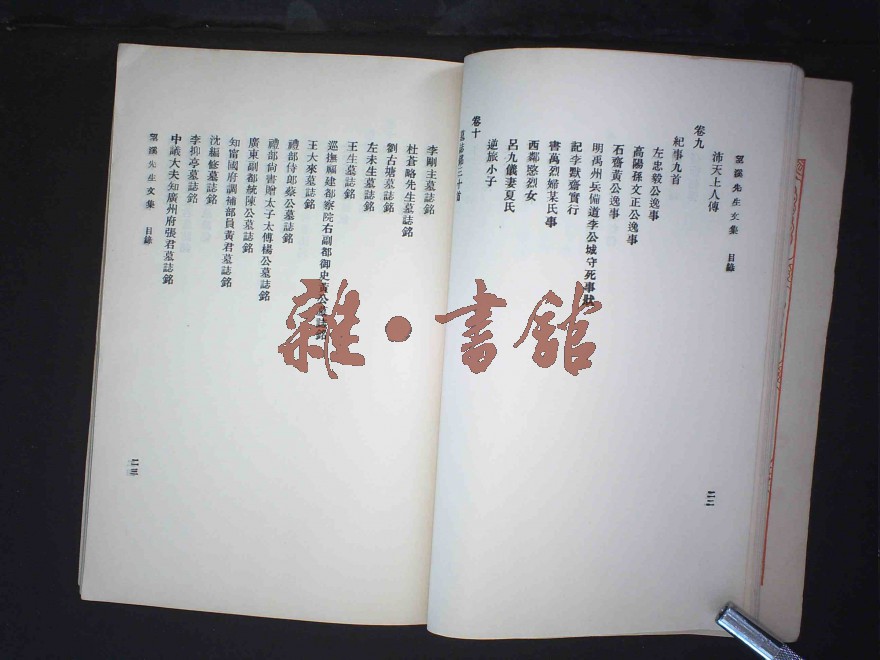 望溪先生文集 目錄
二二
沛天上人傳
卷九
紀事九首
左忠毅公逸事
高陽孫文正公逸事
石齋黃公逸事
明禹州兵備道李公城守死事狀
記李默齋實行
書萬烈婦某氏事
西鄰愍烈女
呂九儀妻夏氏
逆旅小子
卷十
墓誌銘三十首
李剛主墓誌銘
杜蒼略先生墓誌銘
劉古塘墓誌銘
左未生墓誌銘
王生墓誌銘
巡撫福建都察院右副都御史黃公墓誌銘
王大來墓誌銘
禮部侍郎蔡公墓誌銘
禮部尙書贈太子太傅楊公墓誌銘
廣東副都統陳公墓誌銘
知甯國府調補部員黃君墓誌銘
沈編修墓誌銘
李抑亭墓誌銘
中議大夫知廣州府張君墓誌銘
望溪先生文集 目錄
二三
雜·書館